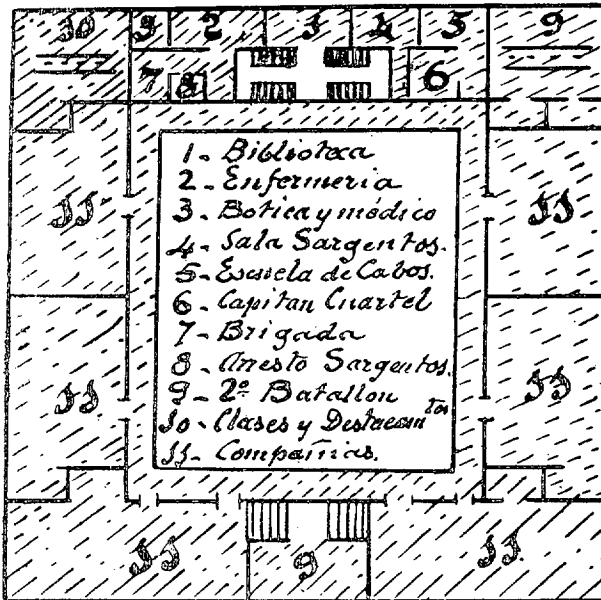 10 1 2 3 4 5 9
7 8 6
1- Biblioteca
2- Enfermeria
3- Botica y médico
4- Sala Sargentos.
5- Escuela de Cabos.
6- Capitan Cuartel
7- Brigada
8- Arresto Sargentos.
9- 2º Batallon
10- Clases y Destacamtos
11- Compañias.
11 11
11 11
11 9 11